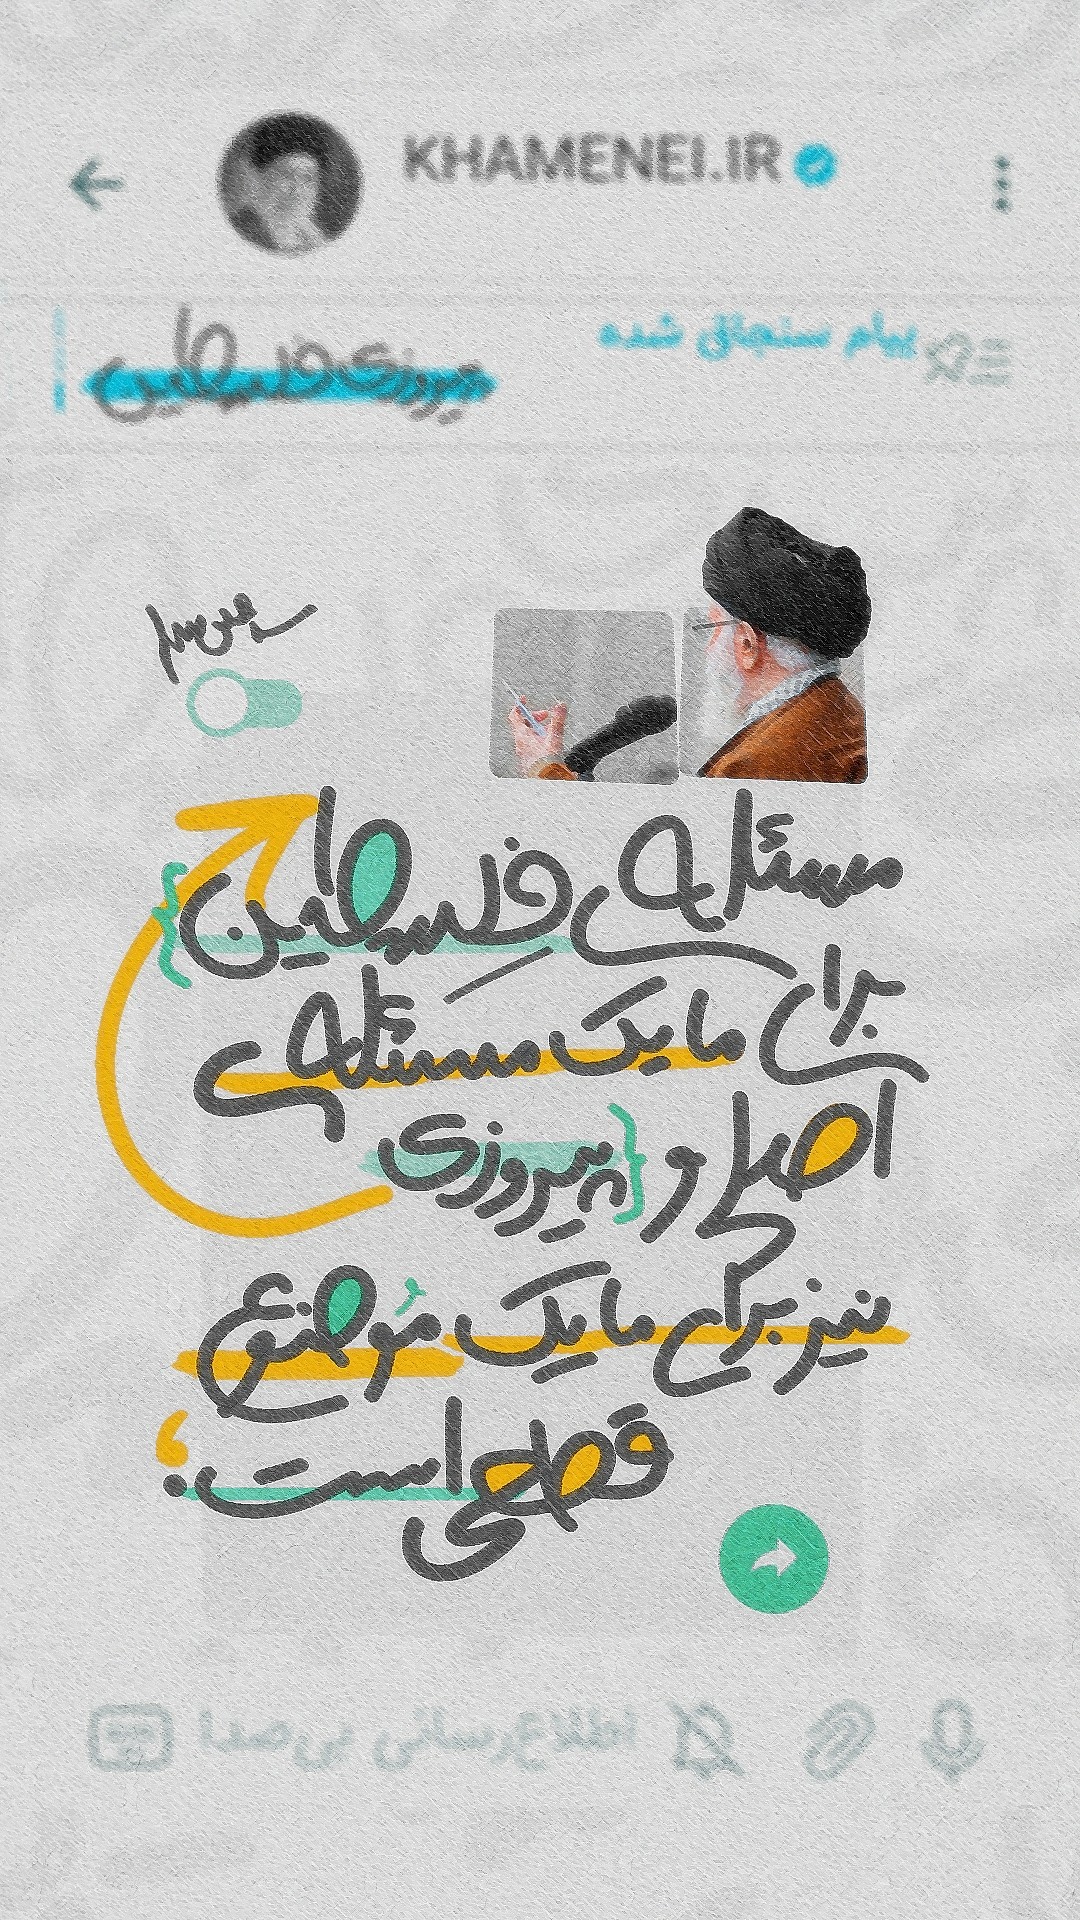 KHAMENEI.IR
پیام سنجاق شده
پیروزی فلسطین
مسئله‌ی فلسطین
برای ما یک مسئله‌ی
اصلی و {پیروزی
نیز برای ما یک مُوضوع
قطعی است.
اطلاع‌رسانی بی‌صدا